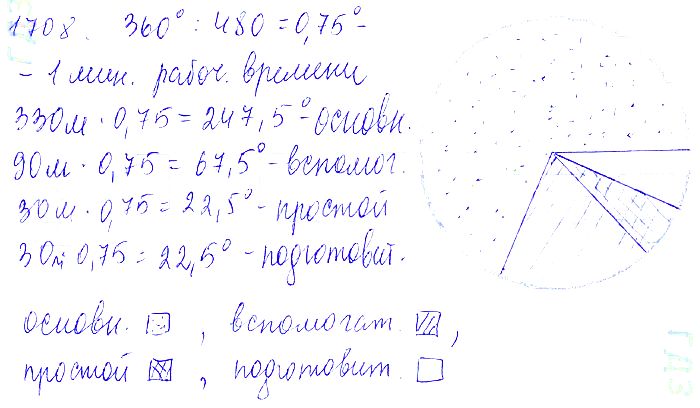 1708. 360° : 480 = 0,75° -
- 1 мин. рабоч. времени
330м · 0,75 = 247,5° - основн.
90м · 0,75 = 67,5° - вспомог.
30м · 0,75 = 22,5° - простой
30м 0,75 = 22,5° - подготовит.
основн. , вспомогат. ,
простой , подготовит.
ГДЗ